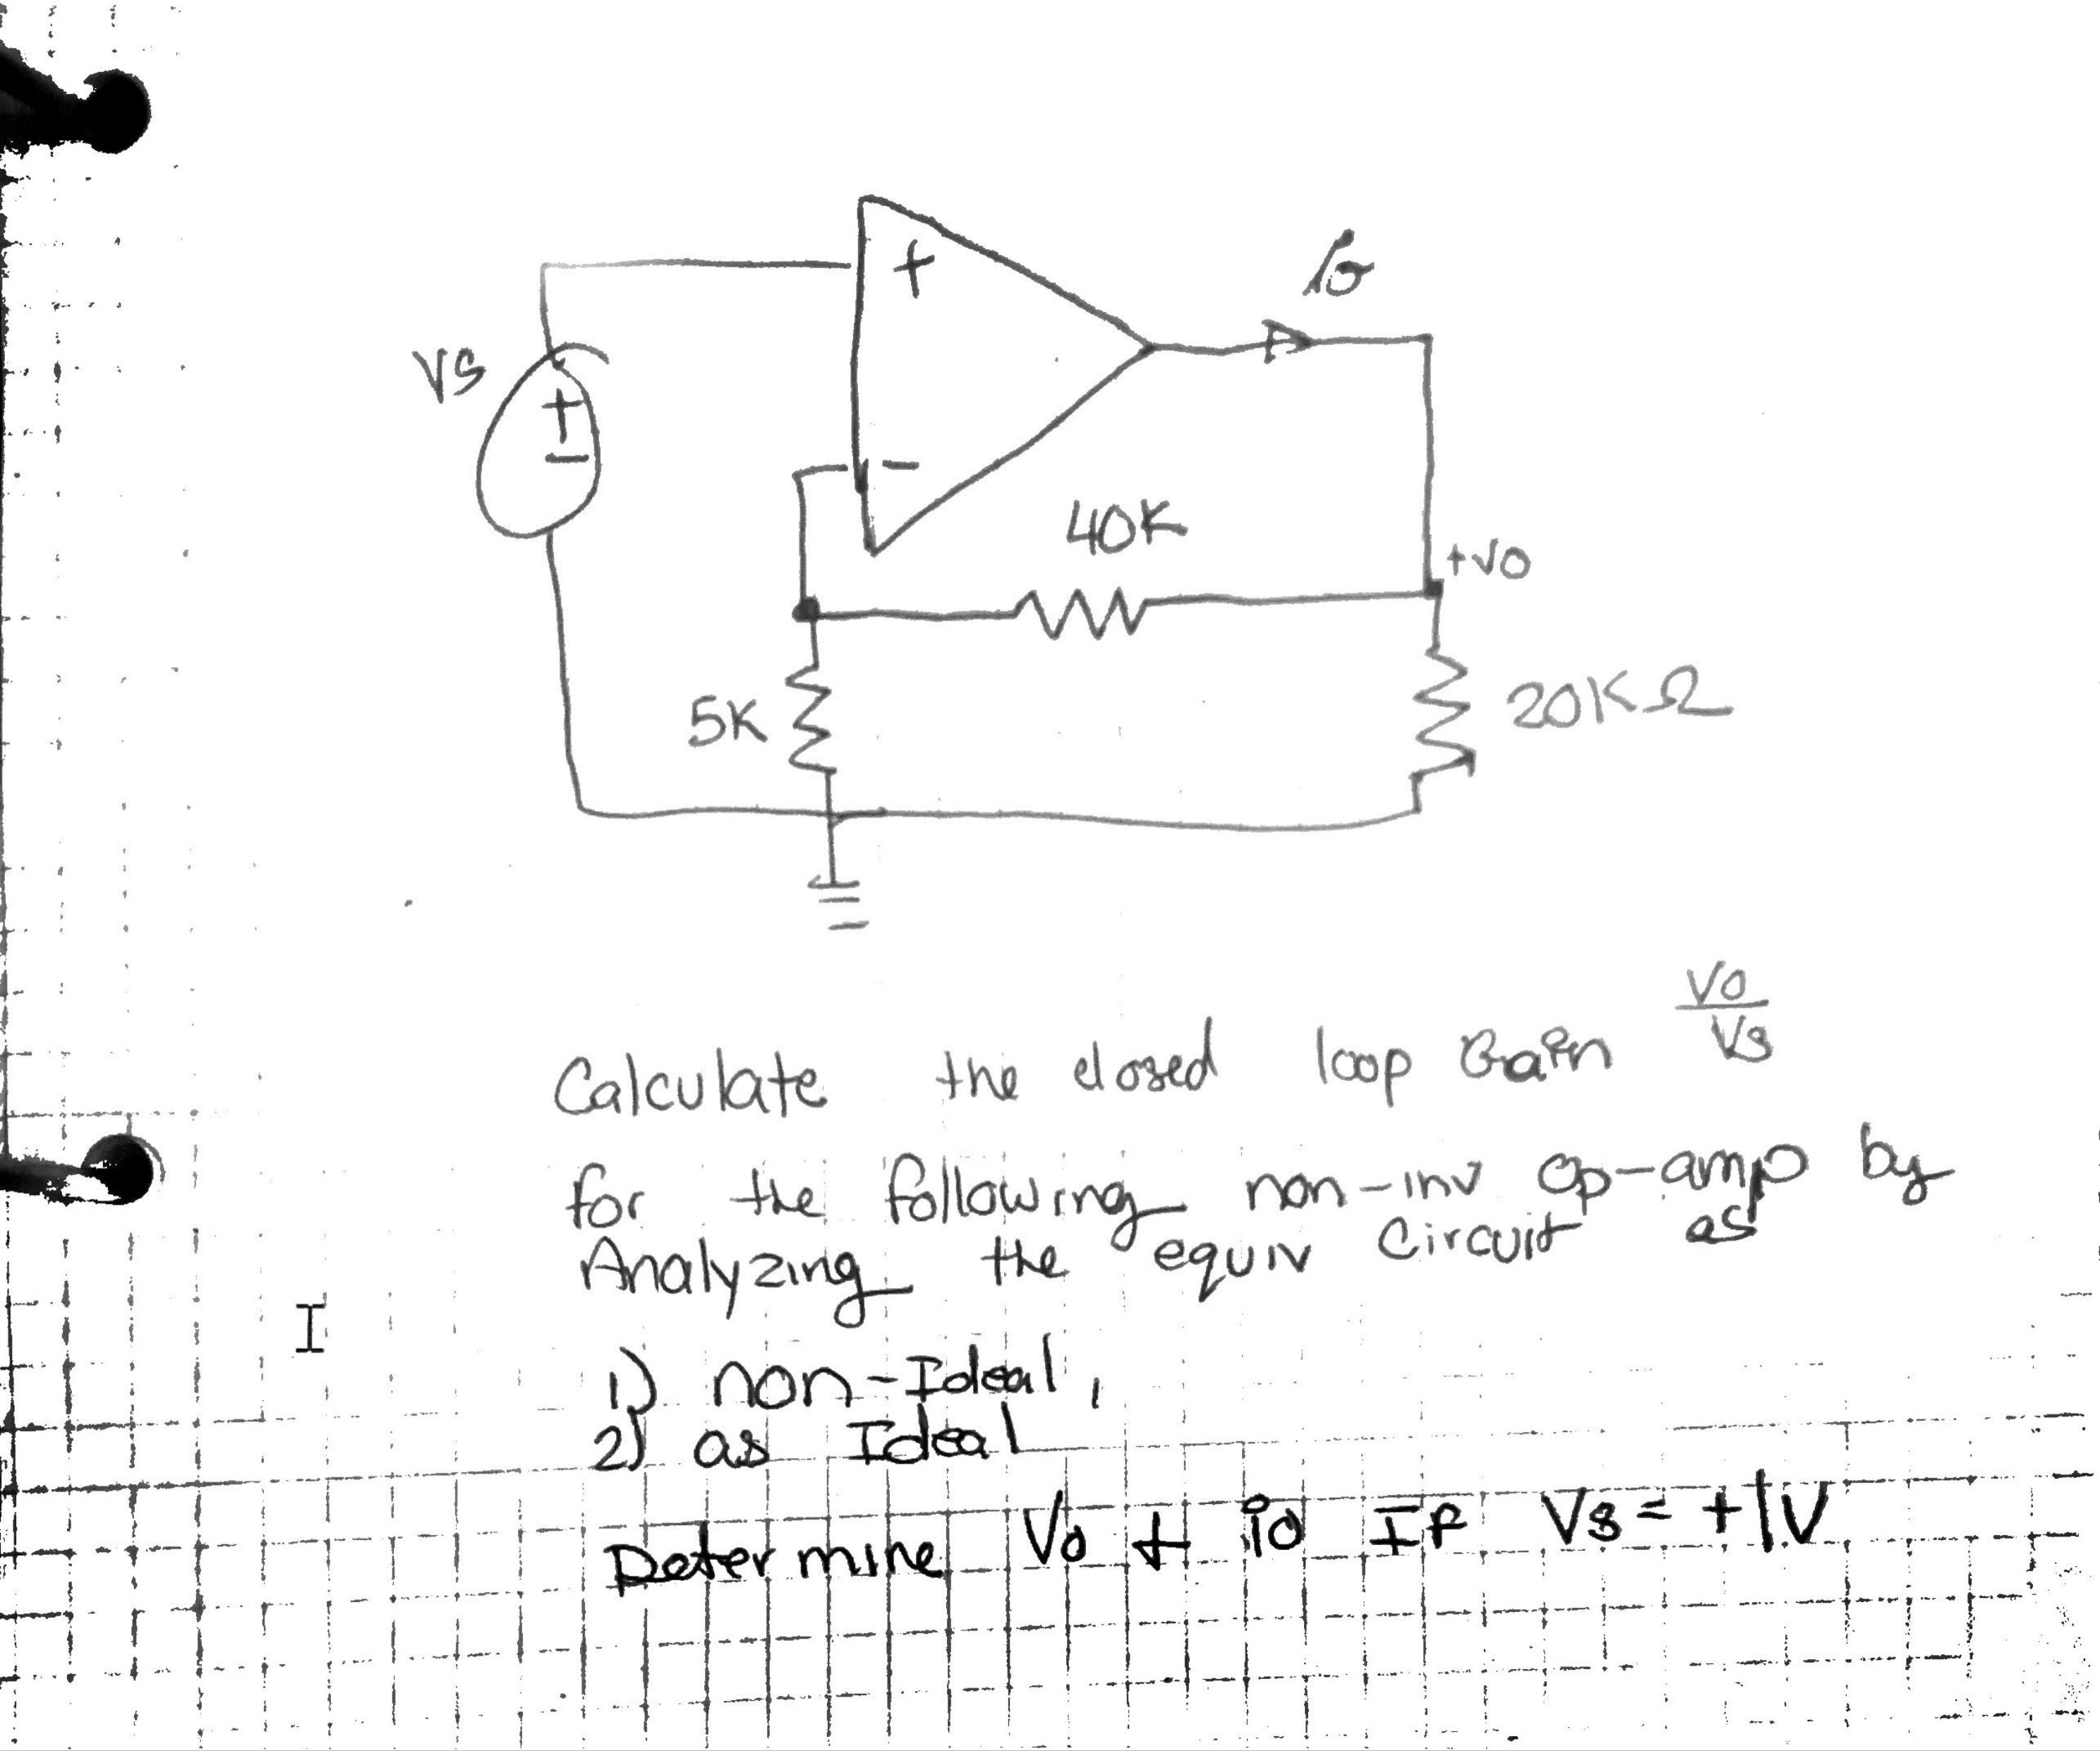 +
io
VS
+
−
−
40K
+VO
5K
20KΩ
Vo
Vs
Calculate the closed loop Gain
for the following non-inv op-amp by
Analyzing the equiv Circuit as
1) non-Ideal,
2) as Ideal
Determine Vo & io If Vs = +1V